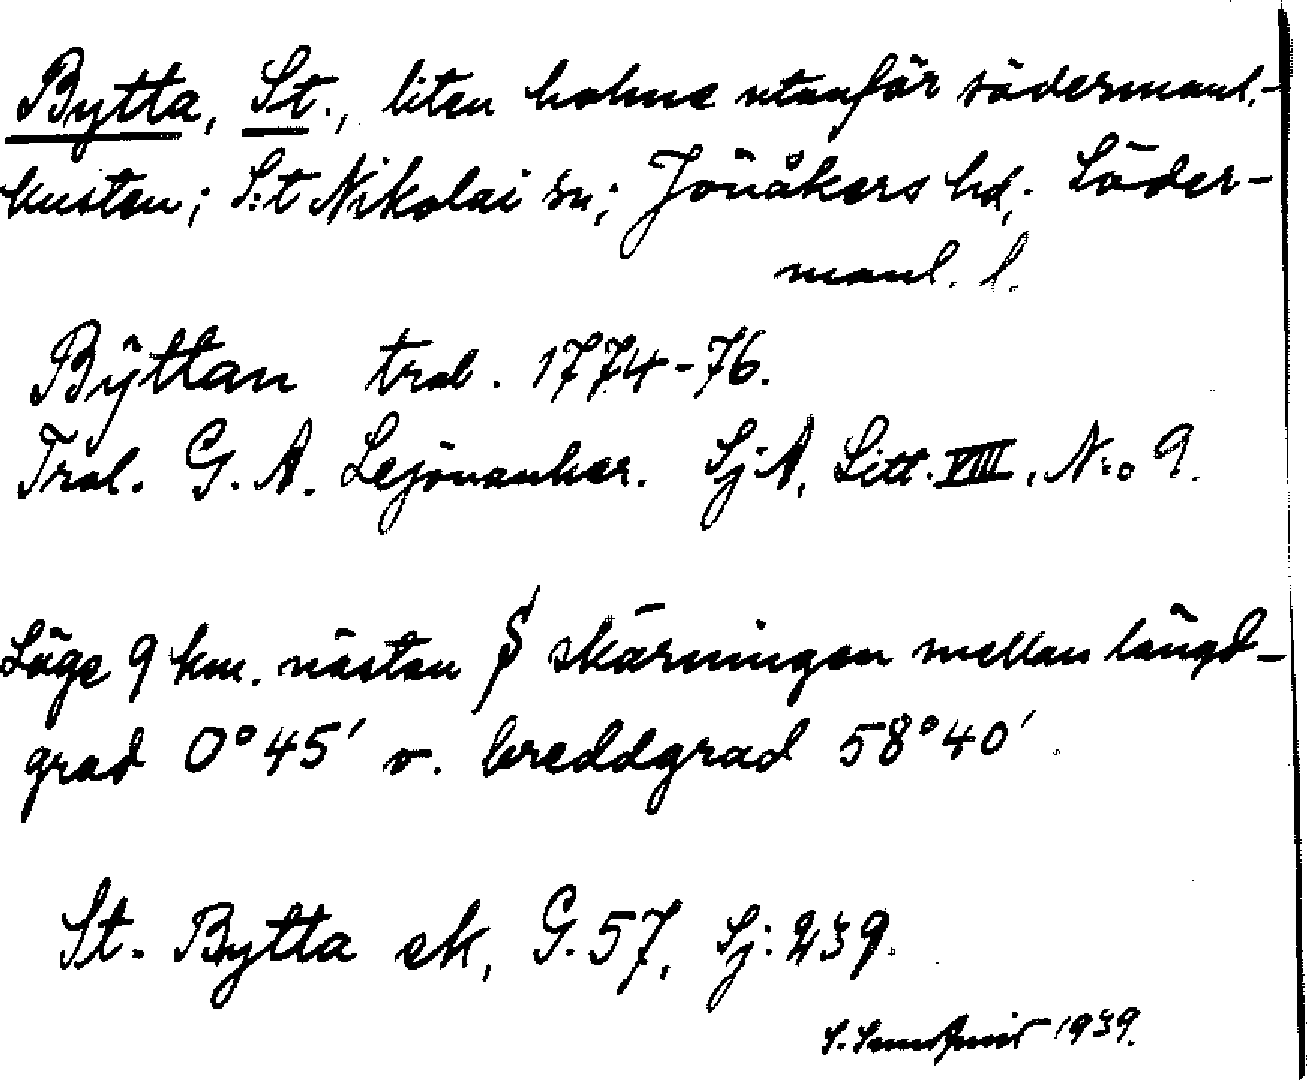 Bytta, St., liten holme utanför södermanl.-
kusten; S:t Nikolai sn; Jönåkers hd; Söder-
manl. l.
Bÿttan trol. 1774-76.
Trol. G. A. Lejonanker. Sj. A, Litt. VIII, N:o 9.
Läge 9 km. nästan S skärningen mellan längd-
grad 0°45' o. breddgrad 58°40'
St. Bytta ek, G. 57, Sj: 239.
S. 1939.